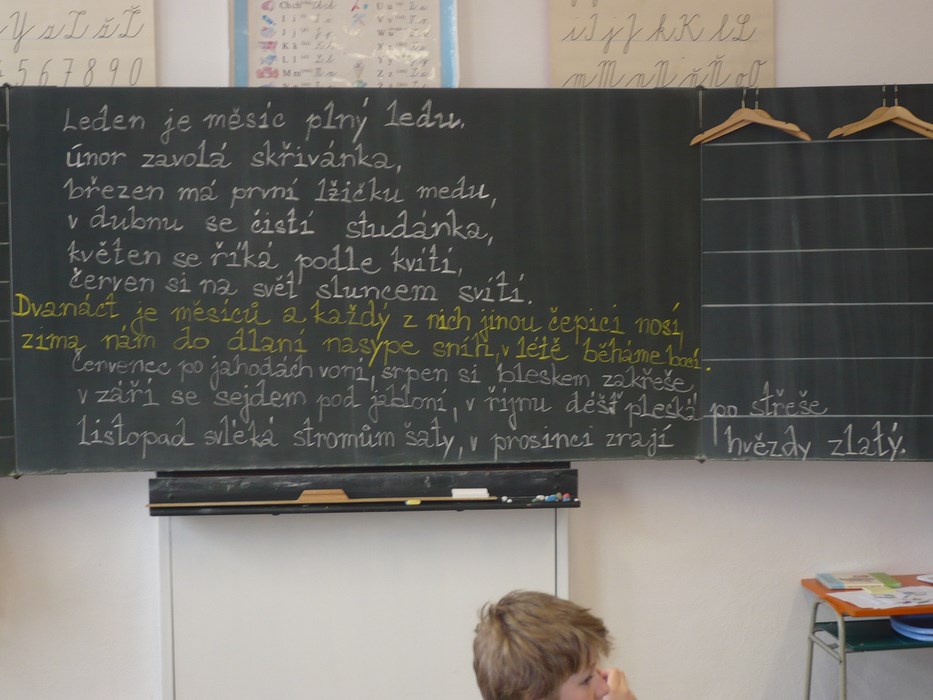 Y z Z ž Ž
5 6 7 8 9 0
i I j J k K l L
m M n N ň Ň o O
Leden je měsíc plný ledu,
únor zavolá skřivánka,
březen má první lžičku medu,
v dubnu se čistí studánka,
květen se říká podle kvítí,
červen si na svět sluncem svítí.
Dvanáct je měsíců a každý z nich jinou čepici nosí,
zima nám do dlaní nasype sníh, v létě běháme bosí.
Červenec po jahodách voní, srpen si bleskem zakřeše,
v září se sejdem pod jabloní, v říjnu déšť pleská po střeše
listopad svléká stromům šaty, v prosinci zrají hvězdy zlatý.